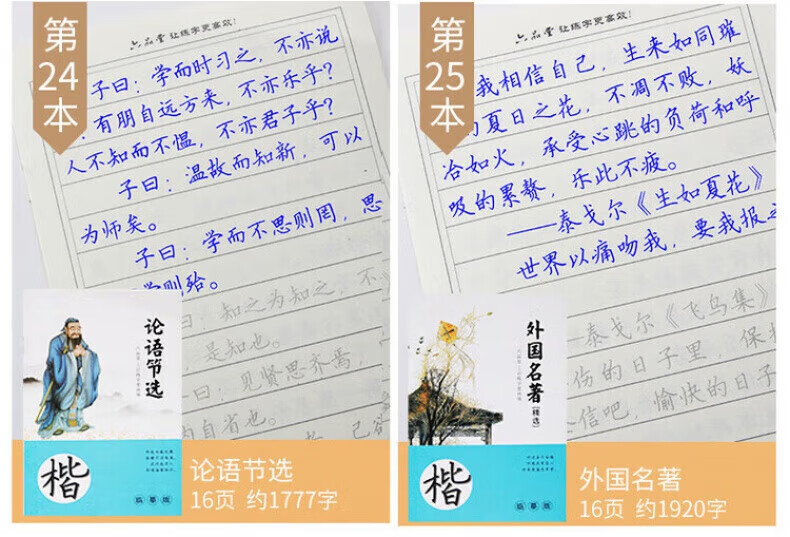 第
24
本
六品堂 让练字更高效!
子曰：学而时习之，不亦说
有朋自远方来，不亦乐乎?
人不知而不愠，不亦君子乎?
子曰：温故而知新，可以
为师矣。
子曰：学而不思则罔，思
学则殆。
曰：知之为知之，不
是知也。
曰：见贤思齐焉，
内自省也。
论语节选
楷
临摹版
论语节选
16页 约1777字
第
25
本
六品堂 让练字更高效!
我相信自己，生来如同璀
的夏日之花，不凋不败，妖
冶如火，承受心跳的负荷和呼
吸的累赘，乐此不疲。
——泰戈尔《生如夏花》
世界以痛吻我，要我报之
——泰戈尔《飞鸟集》
伤的日子里，保持
信吧，愉快的日子
外国名著
[精选]
楷
临摹版
外国名著
16页 约1920字